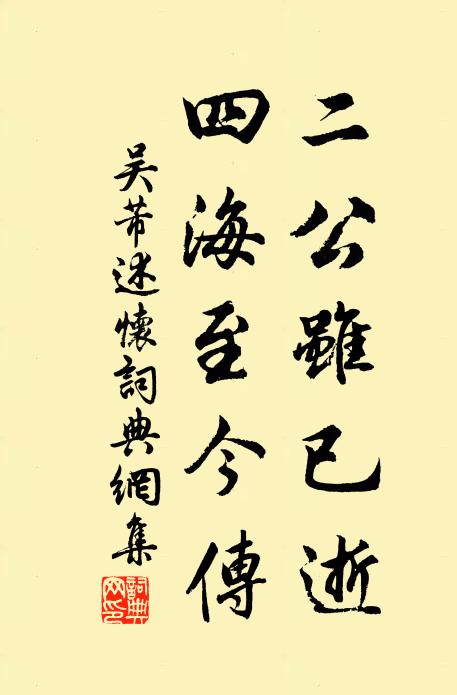 二公雖已逝
四海至今傳
吴芾述懷詞典網集
詞典網印